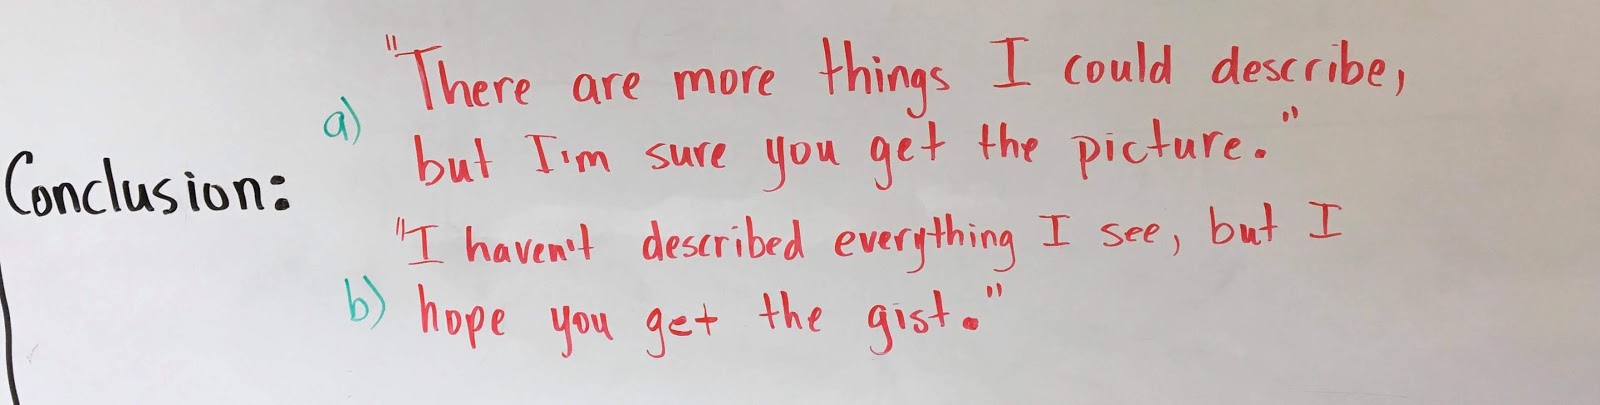 "There are more things I could describe,
a)
but I'm sure you get the picture."
Conclusion:
"I haven't described everything I see, but I
b) hope you get the gist."